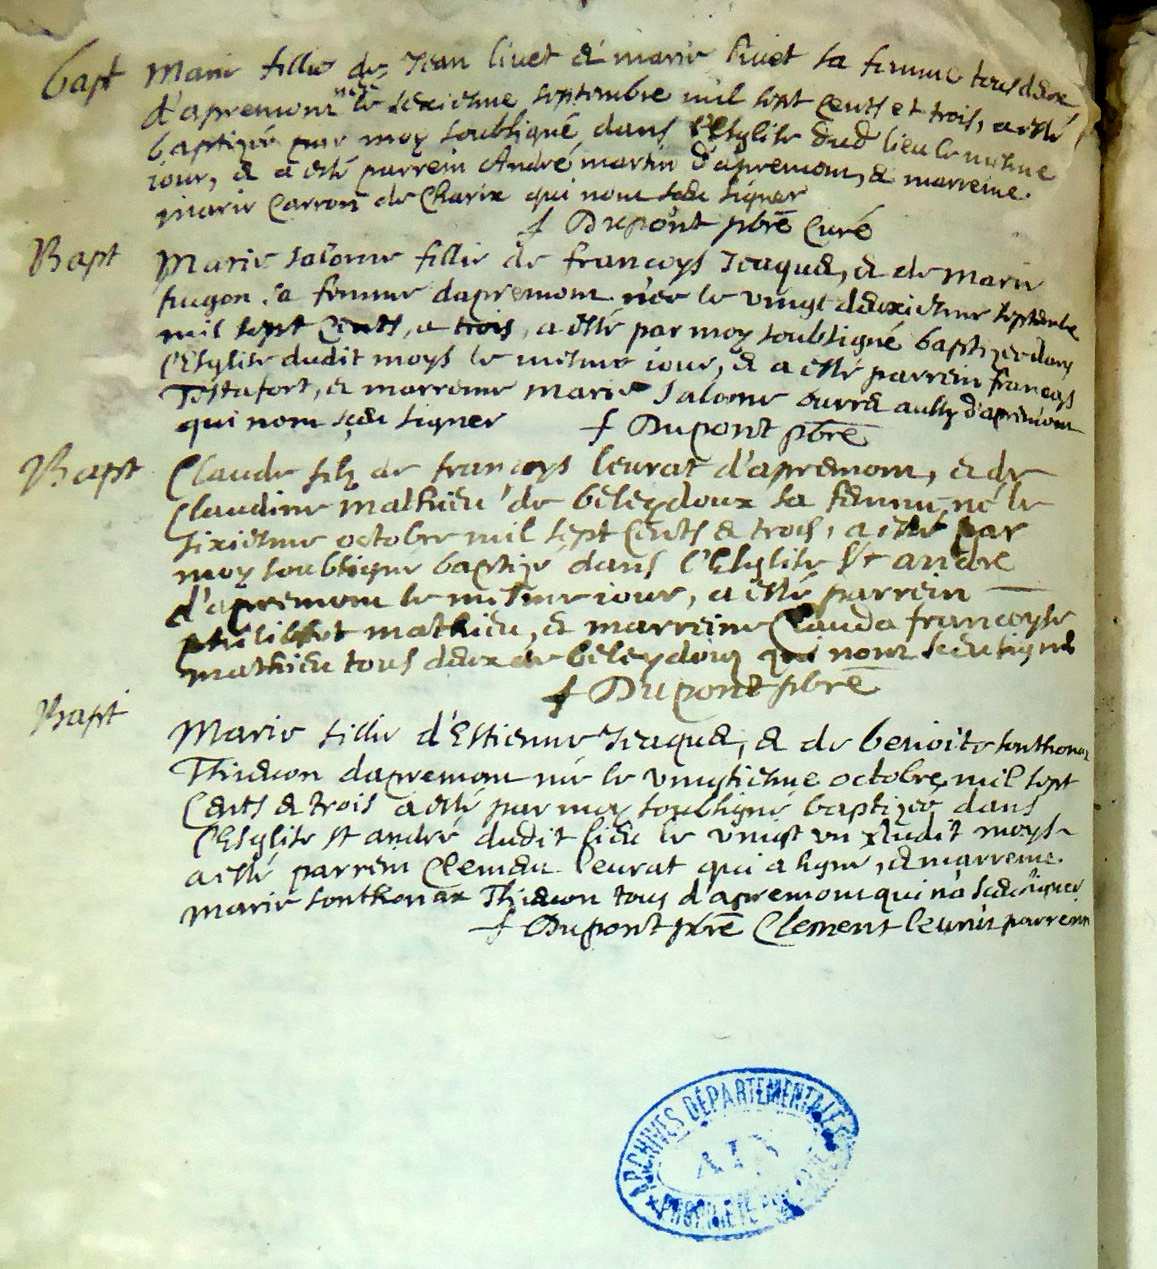 Bapt Marie fillie de Jean livet & marie livet sa femme tous deux
d'apremont née le sexiesme septembre mil sept cents et trois, a esté
baptizée par moy soubsigné dans l'Esglise dud lieu le mesme
iour, & a esté parrein André martin d'apremont, & marreine
marie Carron de Charix qui nont sceu signer
f Dupont pbrē Curé
Bapt Marie salome fillie de françoys Jeaquet, & de Marie
sa femme dapremont née le vingt deuxiesme septembre
mil sept Cents, e trois, a esté par moy soubsigné baptizée dans
l'Esglise dudit moys le mesme iour, & a esté parrein françoys
Tistafort, & marreine marie Salome aussy d'apremont
qui nont sceu signer f Dupont pbrē
Bapt Claude filz de françoys leurat d'apremont, & de
Claudine mathieu de beleydoux sa femme, né le
sixiesme octobre mil sept Cents & trois, a esté par
moy soubsigné baptizé dans l'Esglise St andré
d'apremont le mesme iour, a esté parrein
philibert mathieu, & marreine Clauda françoyse
mathieu tous deux de beleydoux qui nont sceu signé
f Dupont pbrē
Bapt Marie fillie d'Estienne Jeaquet, & de benoite sonthonax
Thieuon dapremont née le vingtiesme octobre mil sept
Cents & trois a esté par moy soubsigné baptizée dans
l'Esglise St andré dudit lieu le vingt un dudit moys
a esté parrein Clement leurat qui a signé, & marreine
marie sonthonax Thieuon tous d'apremont qui na sceu signer
f Dupont pbrē Clement leurat parrein
ARCHIVES DÉPARTEMENTALES
AIN
PROPRIÉTÉ PUBLIQUE